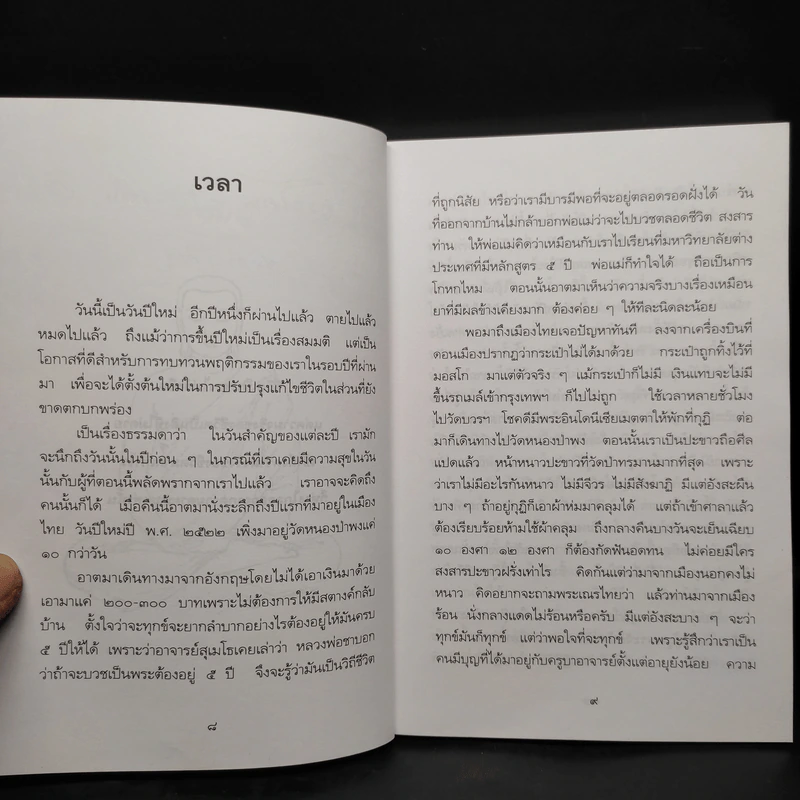 เวลา
วันนี้เป็นวันปีใหม่ อีกปีหนึ่งก็ผ่านไปแล้ว ตายไปแล้ว
หมดไปแล้ว ถึงแม้ว่าการขึ้นปีใหม่เป็นเรื่องสมมติ แต่เป็น
โอกาสที่ดีสำหรับการทบทวนพฤติกรรมของเราในรอบปีที่ผ่าน
มา เพื่อจะได้ตั้งต้นใหม่ในการปรับปรุงแก้ไขชีวิตในส่วนที่ยัง
ขาดตกบกพร่อง
เป็นเรื่องธรรมดาว่า ในวันสำคัญของแต่ละปี เรามัก
จะนึกถึงวันนั้นในปีก่อน ๆ ในกรณีที่เราเคยมีความสุขในวัน
นั้นกับผู้ที่ตอนนี้พลัดพรากจากเราไปแล้ว เราอาจจะคิดถึง
คนนั้นก็ได้ เมื่อคืนนี้อาตมานั่งระลึกถึงปีแรกที่มาอยู่ในเมือง
ไทย วันปีใหม่ปี พ.ศ. ๒๕๒๒ เพิ่งมาอยู่วัดหนองป่าพงแค่
๑๐ กว่าวัน
อาตมาเดินทางมาจากอังกฤษโดยไม่ได้เอาเงินมาด้วย
เอามาแค่ ๒๐๐-๓๐๐ บาทเพราะไม่ต้องการให้มีสตางค์กลับ
บ้าน ตั้งใจว่าจะทุกข์จะยากลำบากอย่างไรต้องอยู่ให้มันครบ
๕ ปีให้ได้ เพราะว่าอาจารย์สุเมโธเคยเล่าว่า หลวงพ่อชาบอก
ว่าถ้าจะบวชเป็นพระต้องอยู่ ๕ ปี จึงจะรู้ว่ามันเป็นวิถีชีวิต
๘
ที่ถูกนิสัย หรือว่าเรามีบารมีพอที่จะอยู่ตลอดรอดฝั่งได้ วัน
ที่ออกจากบ้านไม่กล้าบอกพ่อแม่ว่าจะไปบวชตลอดชีวิต สงสาร
ท่าน ให้พ่อแม่คิดว่าเหมือนกับเราไปเรียนที่มหาวิทยาลัยต่าง
ประเทศที่มีหลักสูตร ๕ ปี พ่อแม่ก็ทำใจได้ ถือเป็นการ
โกหกไหม ตอนนั้นอาตมาเห็นว่าความจริงบางเรื่องเหมือน
ยาที่มีผลข้างเคียงมาก ต้องค่อย ๆ ให้ทีละนิดละน้อย
พอมาถึงเมืองไทยเจอปัญหาทันที ลงจากเครื่องบินที่
ดอนเมืองปรากฏว่ากระเป๋าไม่ได้มาด้วย กระเป๋าถูกทิ้งไว้ที่
มอสโก มาแต่ตัวจริง ๆ แม้กระเป๋าก็ไม่มี เงินแทบจะไม่มี
ขึ้นรถเมล์เข้ากรุงเทพฯ ก็ไปไม่ถูก ใช้เวลาหลายชั่วโมง
ไปวัดบวรฯ โชคดีมีพระอินโดนีเซียเมตตาให้พักที่กุฏิ ต่อ
มาก็เดินทางไปวัดหนองป่าพง ตอนนั้นเราเป็นปะขาวถือศีล
แปดแล้ว หน้าหนาวปะขาวที่วัดป่าทรมานมากที่สุด เพราะ
ว่าเราไม่มีอะไรกันหนาว ไม่มีจีวร ไม่มีสังฆาฏิ มีแต่อังสะผืน
บาง ๆ ถ้าอยู่กุฏิก็เอาผ้าห่มมาคลุมได้ แต่ถ้าเข้าศาลาแล้ว
ต้องเรียบร้อยห้ามใช้ผ้าคลุม ถึงกลางคืนบางวันจะเย็นเฉียบ
๑๐ องศา ๑๒ องศา ก็ต้องกัดฟันอดทน ไม่ค่อยมีใคร
สงสารปะขาวฝรั่งเท่าไร คิดกันแต่ว่ามาจากเมืองนอกคงไม่
หนาว คิดอยากจะถามพระเณรไทยว่า แล้วท่านมาจากเมือง
ร้อน นั่งกลางแดดไม่ร้อนหรือครับ มีแต่อังสะบาง ๆ จะว่า
ทุกข์มันก็ทุกข์ แต่ว่าพอใจที่จะทุกข์ เพราะรู้สึกว่าเราเป็น
คนมีบุญที่ได้มาอยู่กับครูบาอาจารย์ตั้งแต่อายุยังน้อย ความ
๙